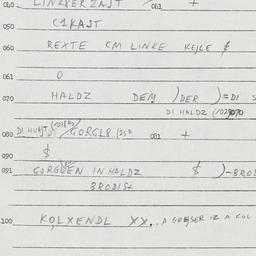 060 LINKKERZAJT 061 +
050 C1KAJT
060 REXTE CM LINKE KEJLE $
061 O
070 HALDZ DEM ) DER ) = DI S
DI HALDZ 070
080 DI GORGL8 081 +
090 $
091 GORGLEN IN HALDZ $ ) - BROD
BRODIST
100 KOLXENDL XX.. A GREJSER IZ A KOL